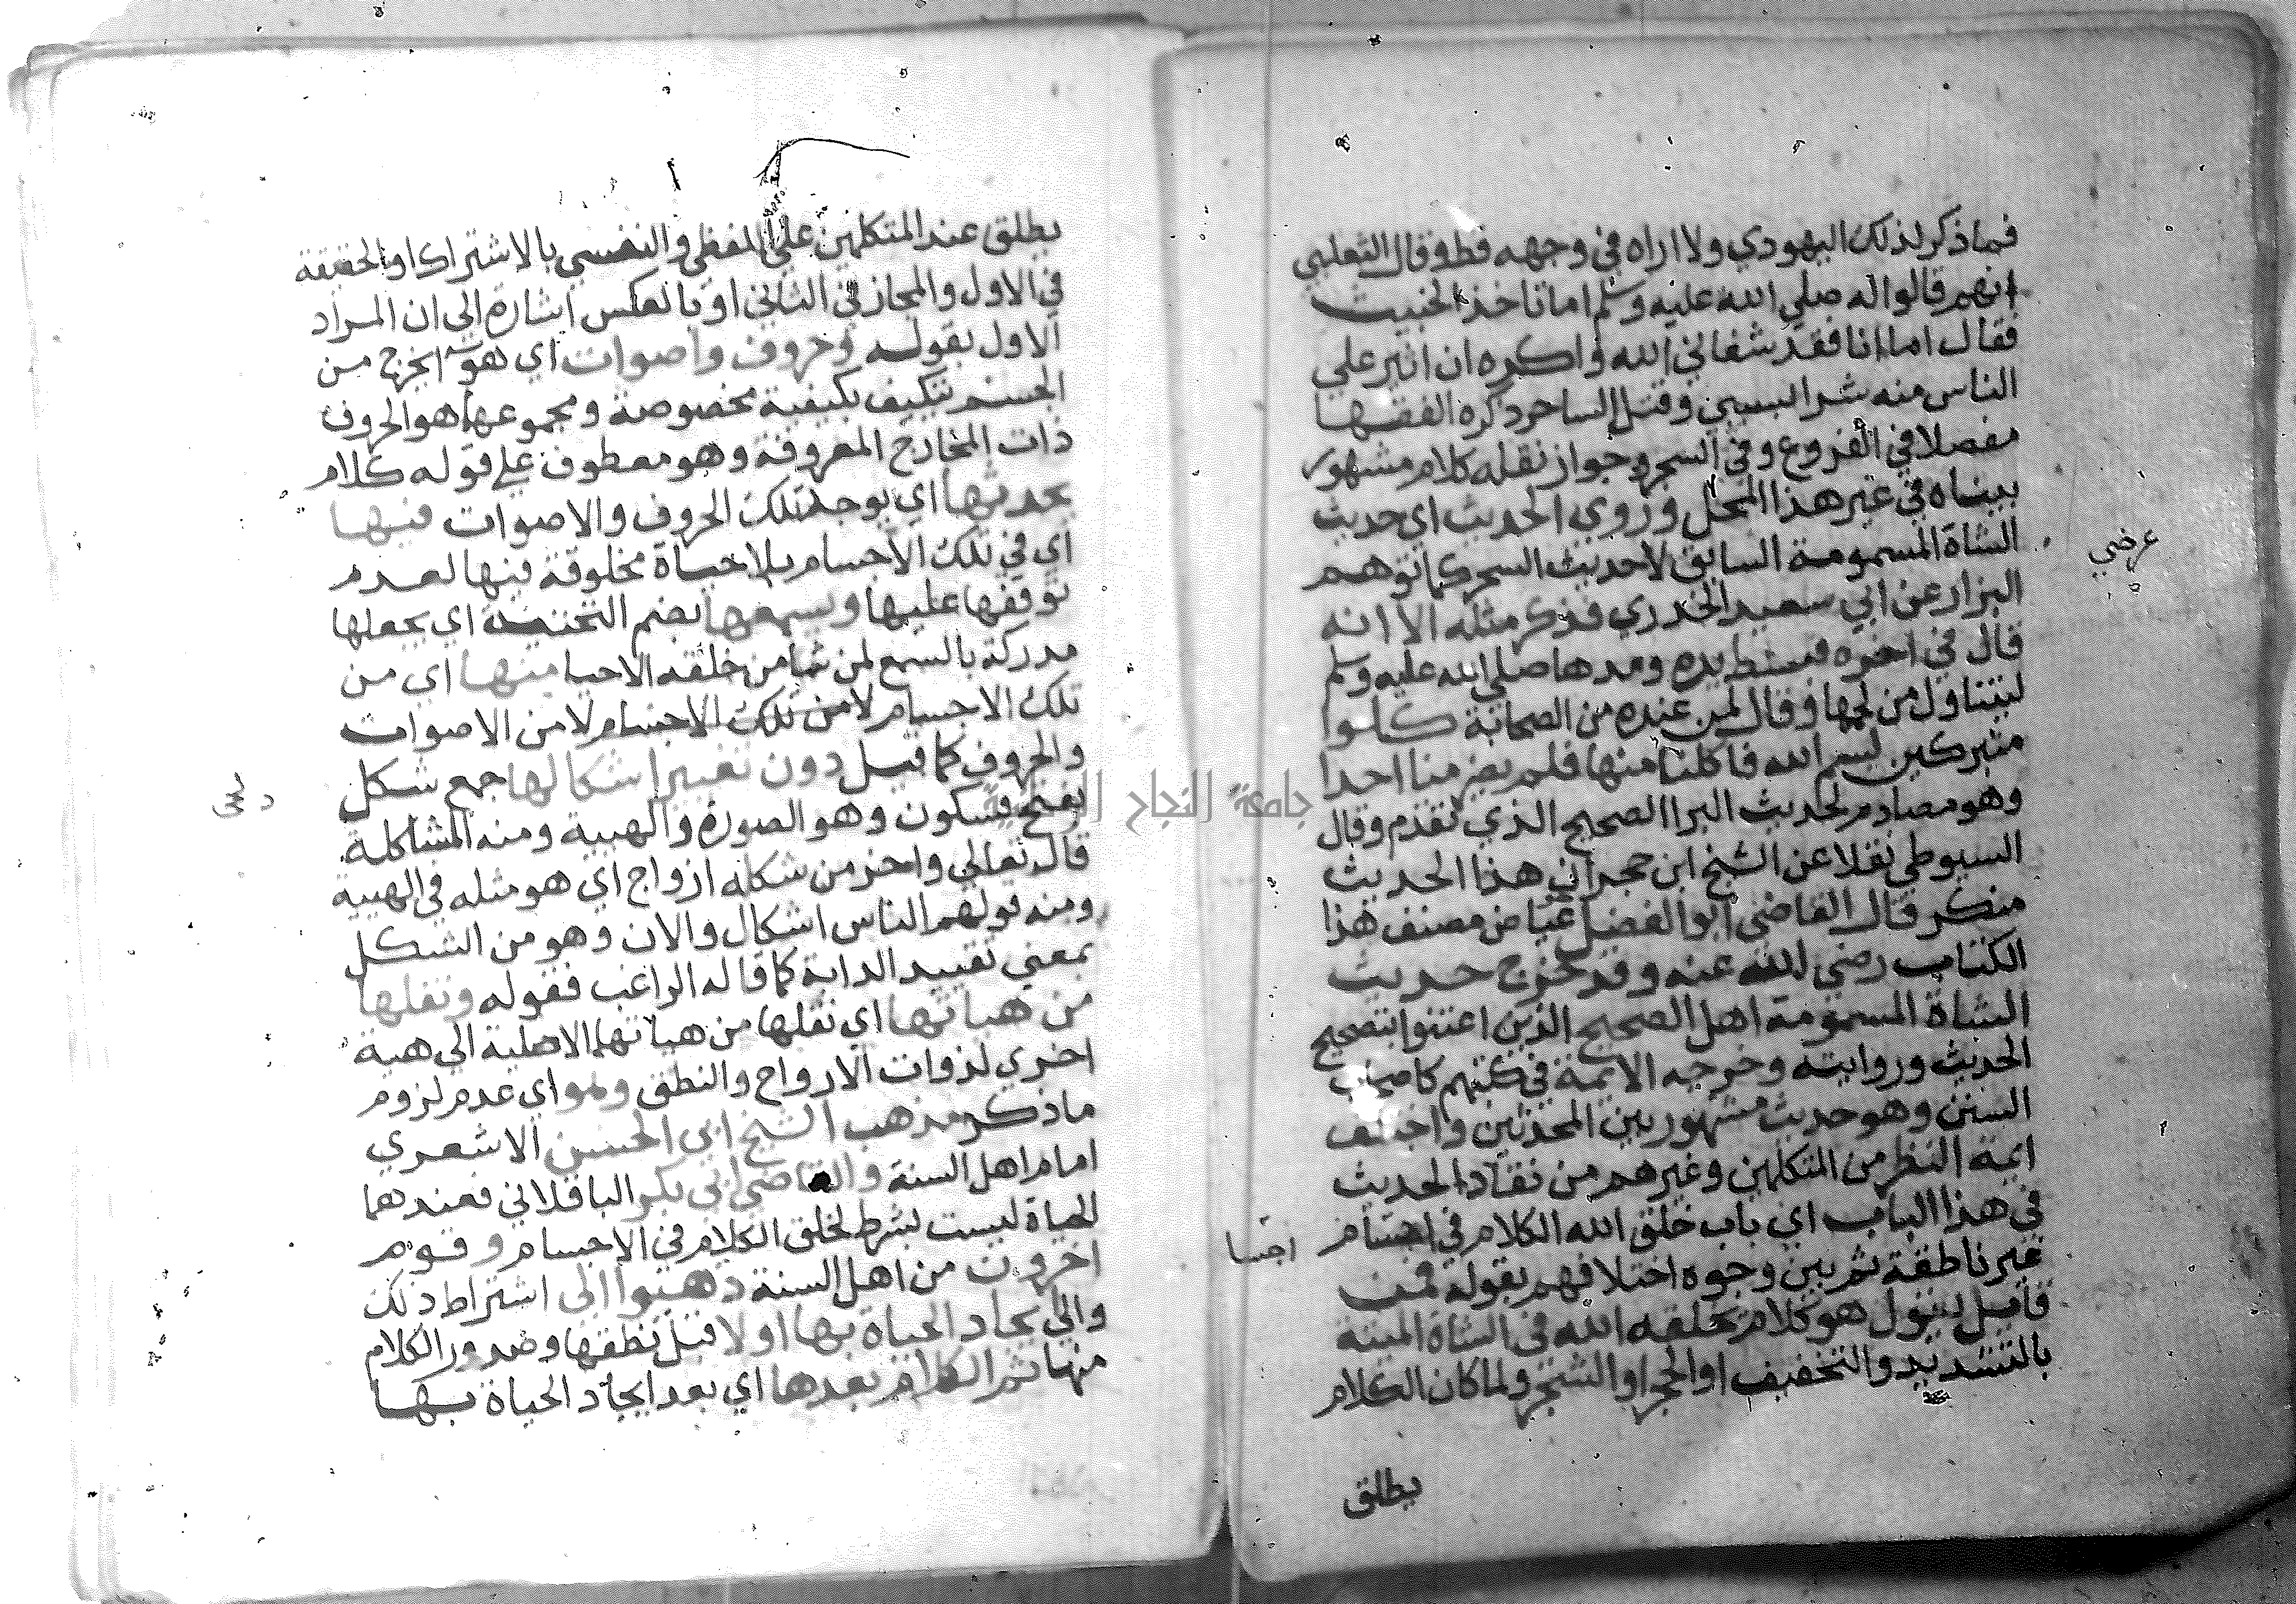 فما ذكر لذلك اليهودي ولا اراه في وجهه قط وقال الثعلبي
انهم قالوا له صلي الله عليه وسلم اما تاخذ الخبيث
فقال اما انا فقد شفاني الله واكره ان اثير علي
الناس منه شرا البيهقي وقتل الساحر ذكره الفقها
مفصلا في الفروع وفي السحر وجواز نقله كلام مشهور
بيناه في غير هذا المحل وروي الحديث اي حديث
الشاة المسمومة السابق لا حديث السحر كما توهم
عرضي
البزار عن ابي سعيد الخدري فذكر مثله الا انه
قال في اخره فبسط يده ومدها صلي الله عليه وسلم
ليتناول من لحمها وقال لمن عنده من الصحابة كلوا
متبركين بسم الله فاكلنا منها فلم يضر منا احدا
وهو مصادم لحديث البرا الصحيح الذي تقدم وقال
السيوطي نقلا عن الشيخ ابن حجر ان هذا الحديث
منكر قال القاضي ابو الفضل عياض مصنف هذا
الكتاب رضي الله عنه وقد خرج حديث
الشاة المسمومة اهل الصحيح الذين اعتنوا بتصحيح
الحديث وروايته وخرجه الايمة في كتبهم كاصحاب
السنن وهو حديث مشهور بين المحدثين واختلف
ايمة النظر من المتكلمين وغيرهم من نقاد الحديث
في هذا الباب اي باب خلق الله الكلام في اجسام
اجسا
غير ناطقة ثم بين وجوه اختلافهم بقوله فمن
قايل يقول هو كلام يخلقه الله في الشاة الميتة
بالتشديد والتخفيف او الحجر او الشجر ولما كان الكلام
يطلق
يطلق عند المتكلمين علي اللفظي والنفسي بالاشتراك او الحقيقة
في الاول والمجاز في الثاني او بالعكس اشارة الي ان المراد
الاول بقوله وحروف واصوات اي هو يخرج من
الجسم تتكيف بكيفية مخصوصة ومجموعها هو الحروف
ذات المخارج المعروفة وهو معطوف علي قوله كلام
يحدثها اي يوجد تلك الحروف والاصوات فيها
اي في تلك الاجسام بلا حياة مخلوقة فيها لعدم
توقفها عليها ويسمعها بضم التحتية اي يجعلها
مدركة بالسمع لمن شا من خلقه الاحيا منها اي من
تلك الاجسام لا من تلك الاجسام لا من الاصوات
والحروف كما قيل دون تغيير اشكالها جمع شكل
بفتح فسكون وهو الصورة والهيية ومنه المشاكلة
قال تعالي واخر من شكله ازواج اي هو مثله في الهيية
ومنه قولهم الناس اشكال والان وهو من الشكل
بمعني تقييد الدابة كما قاله الراغب فقوله ونقلها
من هياتها اي نقلها من هياتها الاصلية الي هية
اخري لذوات الارواح والنطق وهو اي عدم لزوم
ما ذكر مذهب الشيخ ابي الحسن الاشعري
امام اهل السنة والقاضي ابي بكر الباقلاني فعندهما
الحياة ليست بشرط لخلق الكلام في الاجسام وقوم
اخرون من اهل السنة ذهبوا الي اشتراط ذلك
والي يجاد الحياة بها اولا قبل نطقها وصدور الكلام
منها ثم الكلام بعدها اي بعد ايجاد الحياة بها
جامعة النجاح الوطنية